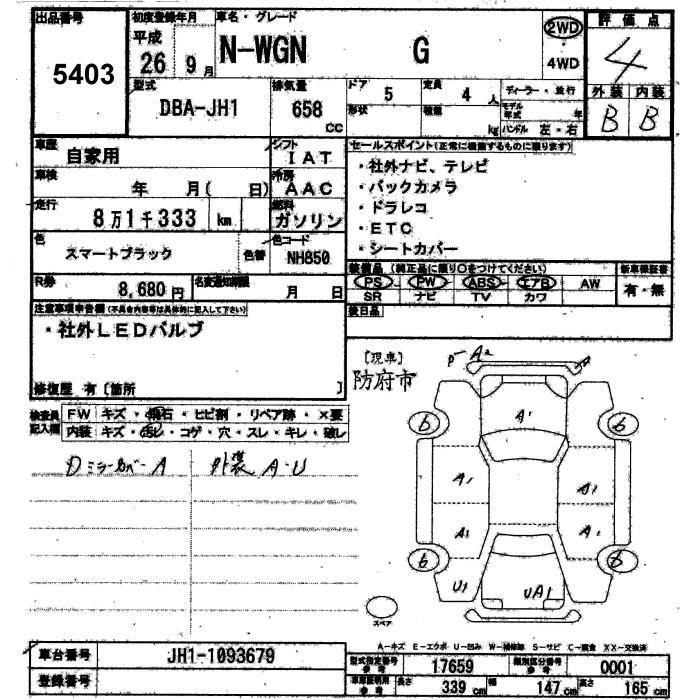 出品番号 5403
初度登録年月 平成 26 9月
車名・グレード N-WGN G
2WD 4WD
評価点 4
外装 内装
B B
型式 DBA-JH1
排気量 658 cc
ドア 5 定員 4 人
形状 積載 kg
ディーラー・並行
モデル年式 年
ハンドル 左・右
車歴 自家用
シフト IAT
車検 年 月( 日)
冷房 AAC
走行 8万1千333 km
燃料 ガソリン
色 スマートブラック 色替
色コード NH850
R券 8,680円
名変通知期限 月 日
セールスポイント(正常に機能するものに限ります)
・社外ナビ、テレビ
・バックカメラ
・ドラレコ
・ETC
・シートカバー
装備品 (純正品に限り○をつけてください)
PS PW ABS エアB AW
SR ナビ TV カワ
新車保証書
有・無
後日品
注意事項申告欄(不具合内容等は具体的に記入して下さい)
・社外LEDバルブ
修復歴 有 [箇所 ]
検査員記入欄
FW キズ・飛石・ヒビ割・リペア跡・×要
内装 キズ・汚レ・コゲ・穴・スレ・キレ・破レ
Dミラーカバー A 外装 A・U
[現車]
防府市
P- A2
A
A1
6 6
A1 A1
A1 A1
6 6
U1 UA1
スペア
A-キズ E-エクボ U-凹み W-補修跡 S-サビ C-腐食 XX-交換済
車台番号 JH1-1093679
登録番号
型式指定番号 参考 17659
類別区分番号 参考 0001
車車証明用 参考 長さ 339 cm 幅 147 cm 高さ 165 cm